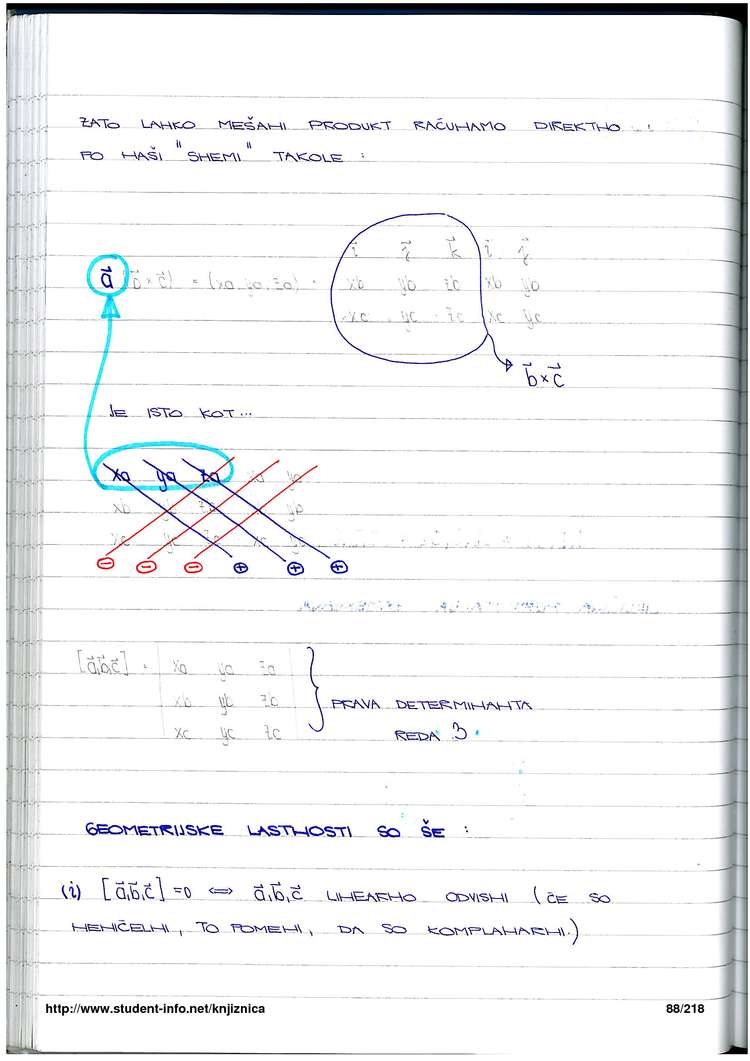 ZATO LAHKO MEŠANI PRODUKT RAČUNAMO DIREKTNO
PO NAŠI "SHEMI" TAKOLE :
i⃗ j⃗ k⃗ i⃗ j⃗
a⃗ (b⃗ × c⃗) = (xa, ya, za) · xb yb zb xb yb
xc yc zc xc yc
b⃗ × c⃗
JE ISTO KOT...
xa ya za xa ya
xb yb zb yb
xc yc zc xc yc
⊖ ⊖ ⊖ ⊕ ⊕ ⊕
[a⃗,b⃗,c⃗] = xa ya za
xb yb zc
PRAVA DETERMINANTA
xc yc zc
REDA 3
GEOMETRIJSKE LASTNOSTI SO ŠE :
(i) [a⃗,b⃗,c⃗] = 0 ⇔ a⃗,b⃗,c⃗ LINEARNO ODVISNI (ČE SO
NENIČELNI, TO POMENI, DA SO KOMPLANARNI.)
http://www.student-info.net/knjiznica 88/218